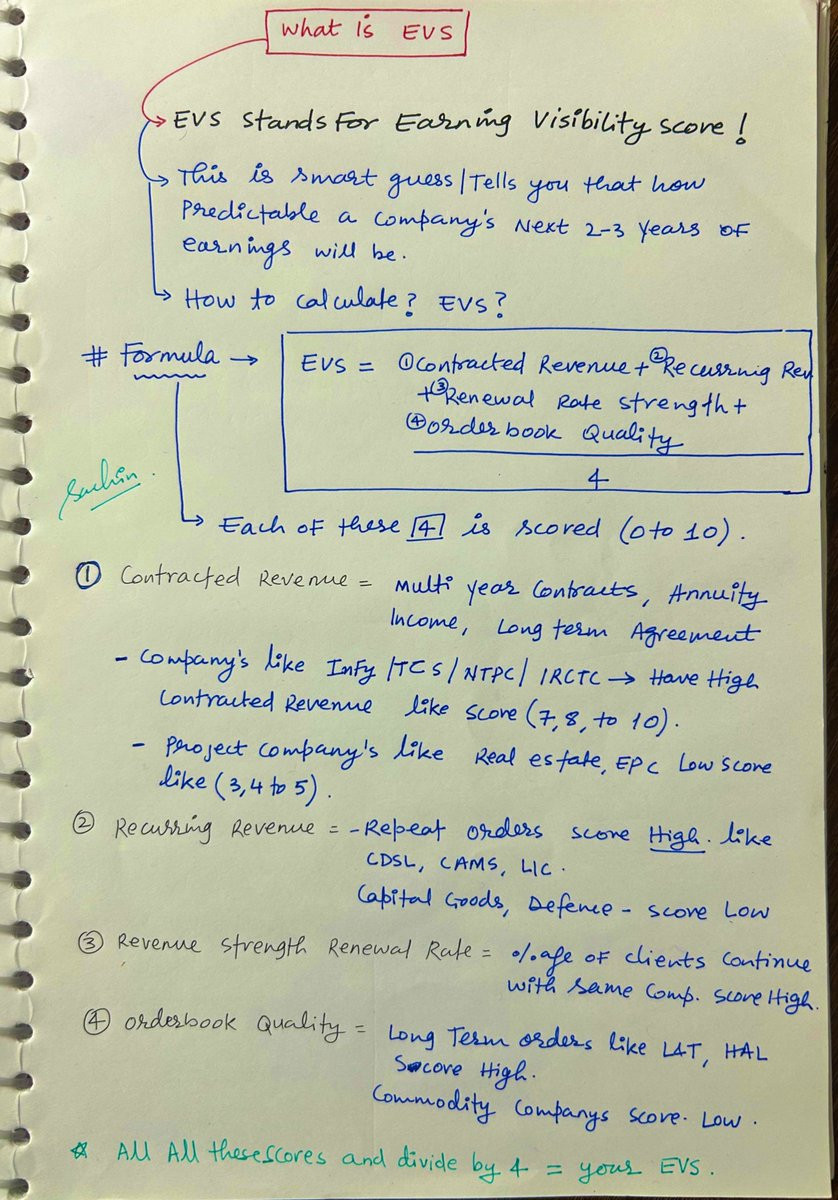 What is EVS
EVS Stands For Earning Visibility Score!
This is smart guess/Tells you that how
Predictable a company's Next 2-3 Years of
earnings will be.
How to calculate? EVS?
# Formula → EVS = ① Contracted Revenue + ② Recurrnig Rev
+ ③ Renewal Rate strength +
④ orderbook Quality
4
Sachin.
Each of these 4 is scored (0 to 10).
① Contracted Revenue = Multi year Contracts, Annuity
Income, Long term Agreement
- Company's like Infy/TCS/NTPC/IRCTC → Have High
Contracted Revenue like score (7,8, to 10).
- Project Company's like Real estate, EPC Low score
like (3,4 to 5).
② Recurring Revenue = - Repeat orders score High. like
CDSL, CAMS, LIC.
Capital Goods, Defence - score Low
③ Revenue Strength Renewal Rate = %age of clients continue
with same Comp. score High.
④ orderbook Quality = Long Term orders like L&T, HAL
Score High.
Commodity Companys score. Low.
☆ All All these scores and divide by 4 = your EVS.